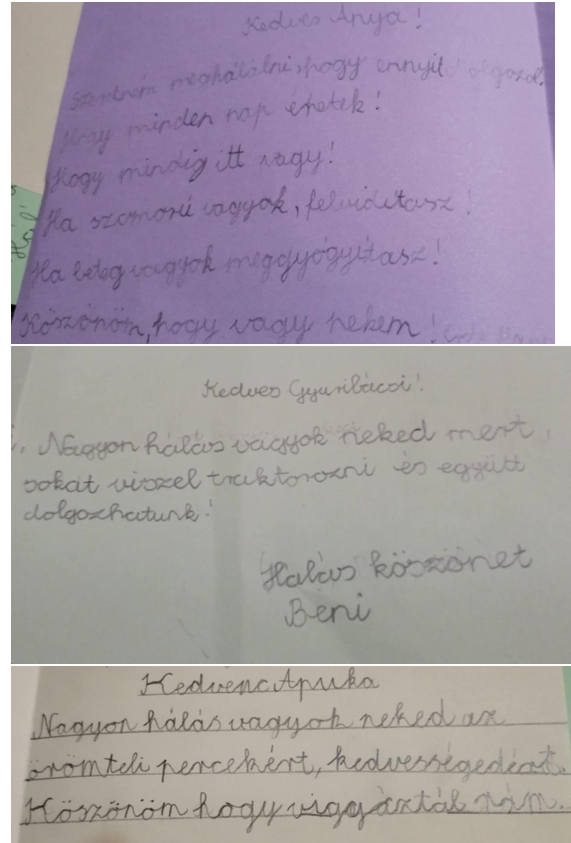 Kedves Anya!
Szeretném meghálálni, hogy ennyit dolgozol.
Hogy minden nap etetek!
Hogy mindig itt vagy!
Ha szomorú vagyok, felvidítasz!
Ha beteg vagyok meggyógyítasz!
Köszönöm, hogy vagy nekem!
Kedves Gyuribácsi!
Nagyon hálás vagyok neked mert
sokat viszel traktorozni és együtt
dolgozhatunk!
Hálás köszönet
Beni
Kedvenc Apuka
Nagyon hálás vagyok neked az
örömteli percekért, kedvességedért.
Köszönöm hogy viggáztál rám.